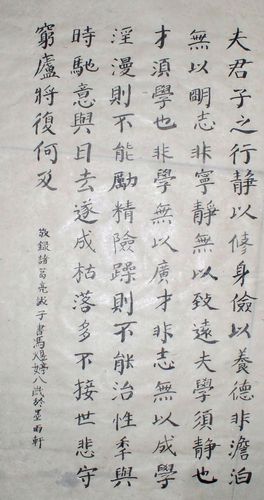 夫君子之行靜以修身儉以養德非澹泊
無以眀志非寧靜無以致遠夫學須靜也
才須學也非學無以廣才非志無以成學
淫漫則不能勵精險躁則不能治性秊與
時馳意與日去遂成枯落多不接世悲守
窮廬將復何及
敬錄諸葛亮誡子書馮煜婷八歲於墨雨軒